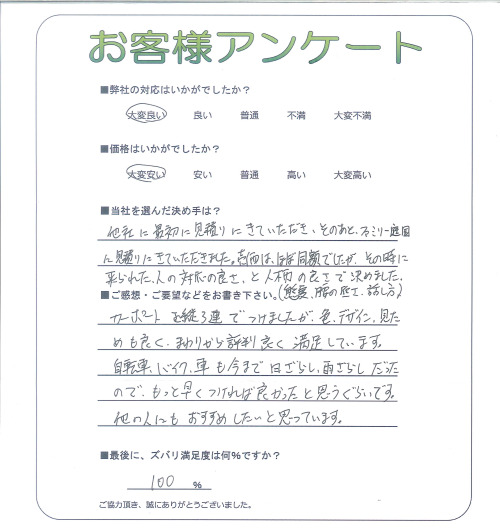 お客様アンケート
■弊社の対応はいかがでしたか？
大変良い 良い 普通 不満 大変不満
■価格はいかがでしたか？
大変安い 安い 普通 高い 大変高い
■当社を選んだ決め手は？
他社に最初に見積りにきていただき、そのあと、ファミリー庭園
に見積りにきていただきました。価格は、ほぼ同額でしたが、その時に
来られた人の対応の良さ、と人柄の良さで決めました。
(態度、腰の低さ、話し方)
■ご感想・ご要望などをお書き下さい。
カーポートを縦3連でつけましたが、色、デザイン、見た
めも良く、まわりから評判良く満足しています。
自転車、バイク、車も今まで日ざらし、雨ざらしだった
ので、もっと早くつければ良かったと思うぐらいです。
他の人にもおすすめしたいと思っています。
■最後に、ズバリ満足度は何%ですか？
100 %
ご協力頂き、誠にありがとうございました。